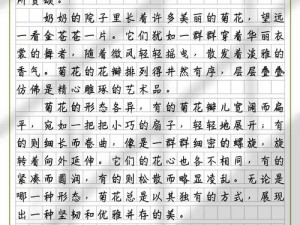 奶奶的院子里长着许多美丽的菊花，望远
一看金苍苍一片。它们犹如一群群穿着华衣
的舞者，随着微风轻轻摇曳，散发着淡雅的
香气。菊花的花瓣排列得井然有序，层层叠叠
仿佛是精心雕琢的艺术品。
菊花的形态各异，有的菊花瓣儿宽阔而扁
平，宛如一把把小巧的扇子，轻轻地展开；有
的则细长而卷曲，像是一群群细密的螺旋，旋
转着向外延伸。它们的花心也各不相同，有的
紧凑而圆润，有的则松散而略显凌乱。无论是
哪一种形态，菊花总是以其独有的方式，展现
出一种坚韧和优雅并存的美。